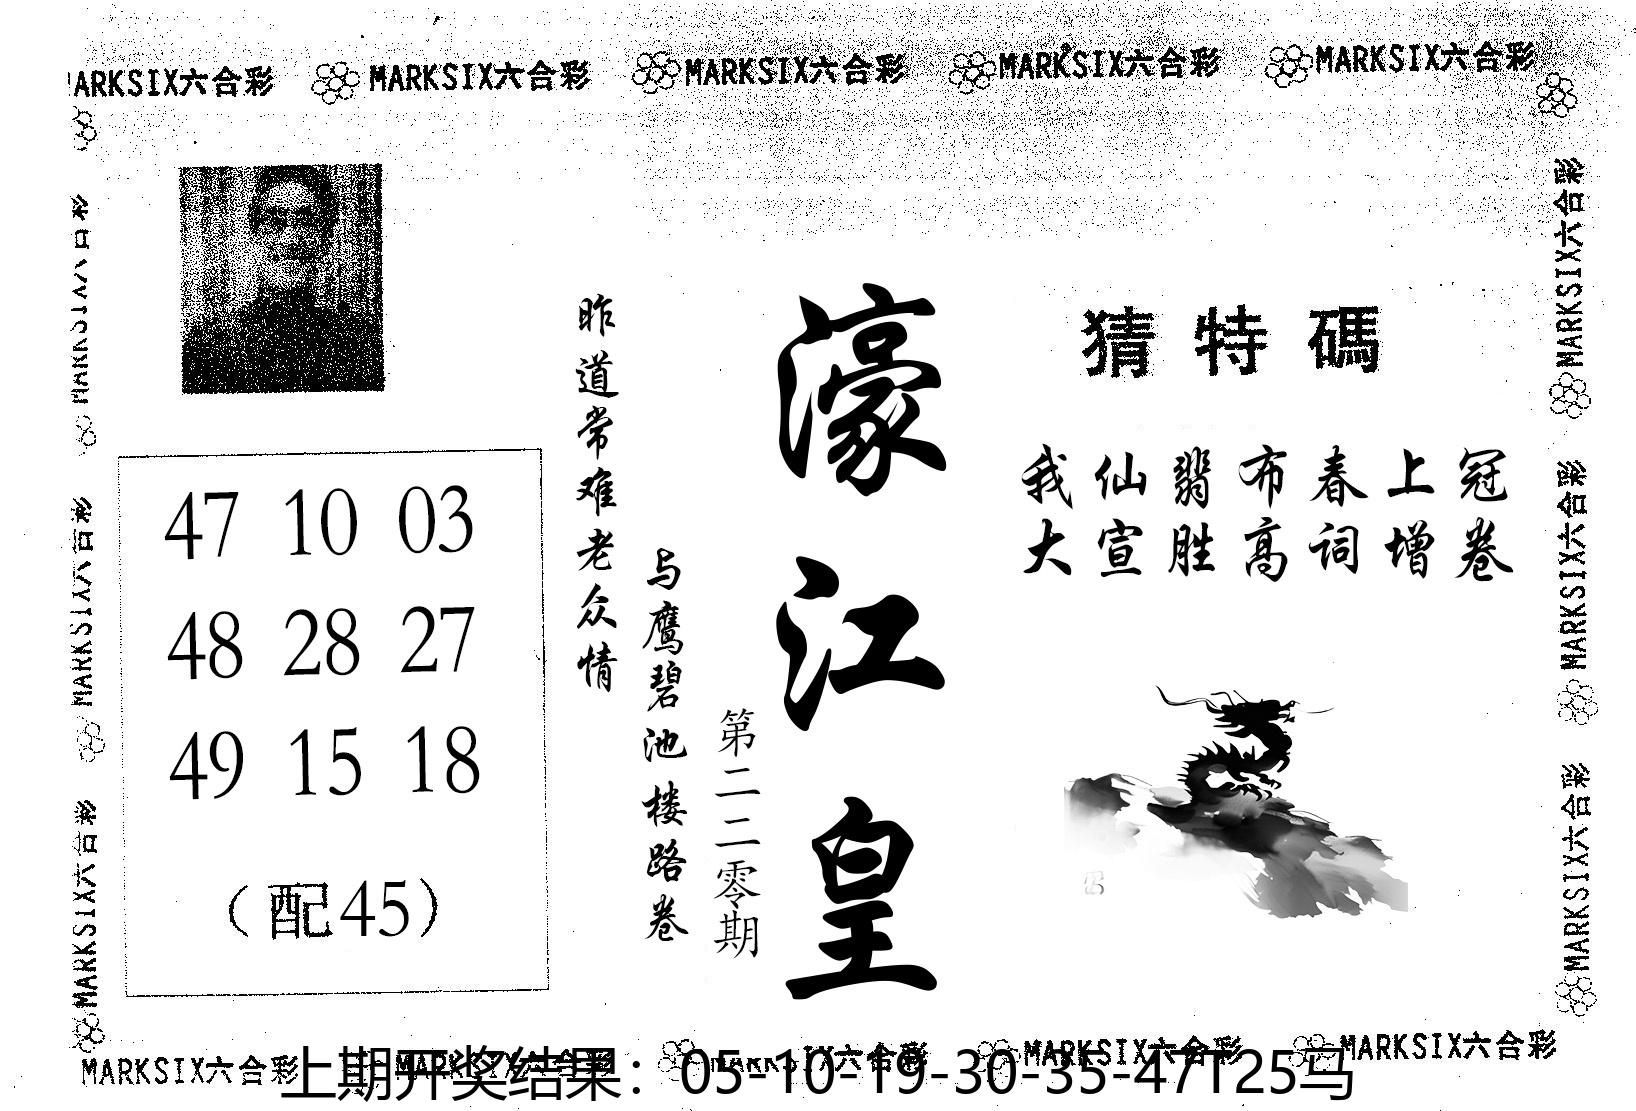 MARKSIX六合彩 MARKSIX六合彩 MARKSIX六合彩 MARKSIX六合彩 MARKSIX六合彩
MARKSIX六合彩
MARKSIX六合彩
MARKSIX六合彩
猜特碼
我仙翡布春上冠
大宣胜高词增卷
濠江皇
第二二零期
与鹰碧池楼路卷
昨道常难老众情
47 10 03
48 28 27
49 15 18
（配45）
MARKSIX六合彩
MARKSIX六合彩
MARKSIX六合彩
MARKSIX六合彩 MARKSIX六合彩 MARKSIX六合彩 MARKSIX六合彩 MARKSIX六合彩
上期开奖结果：05-10-19-30-35-47T25马